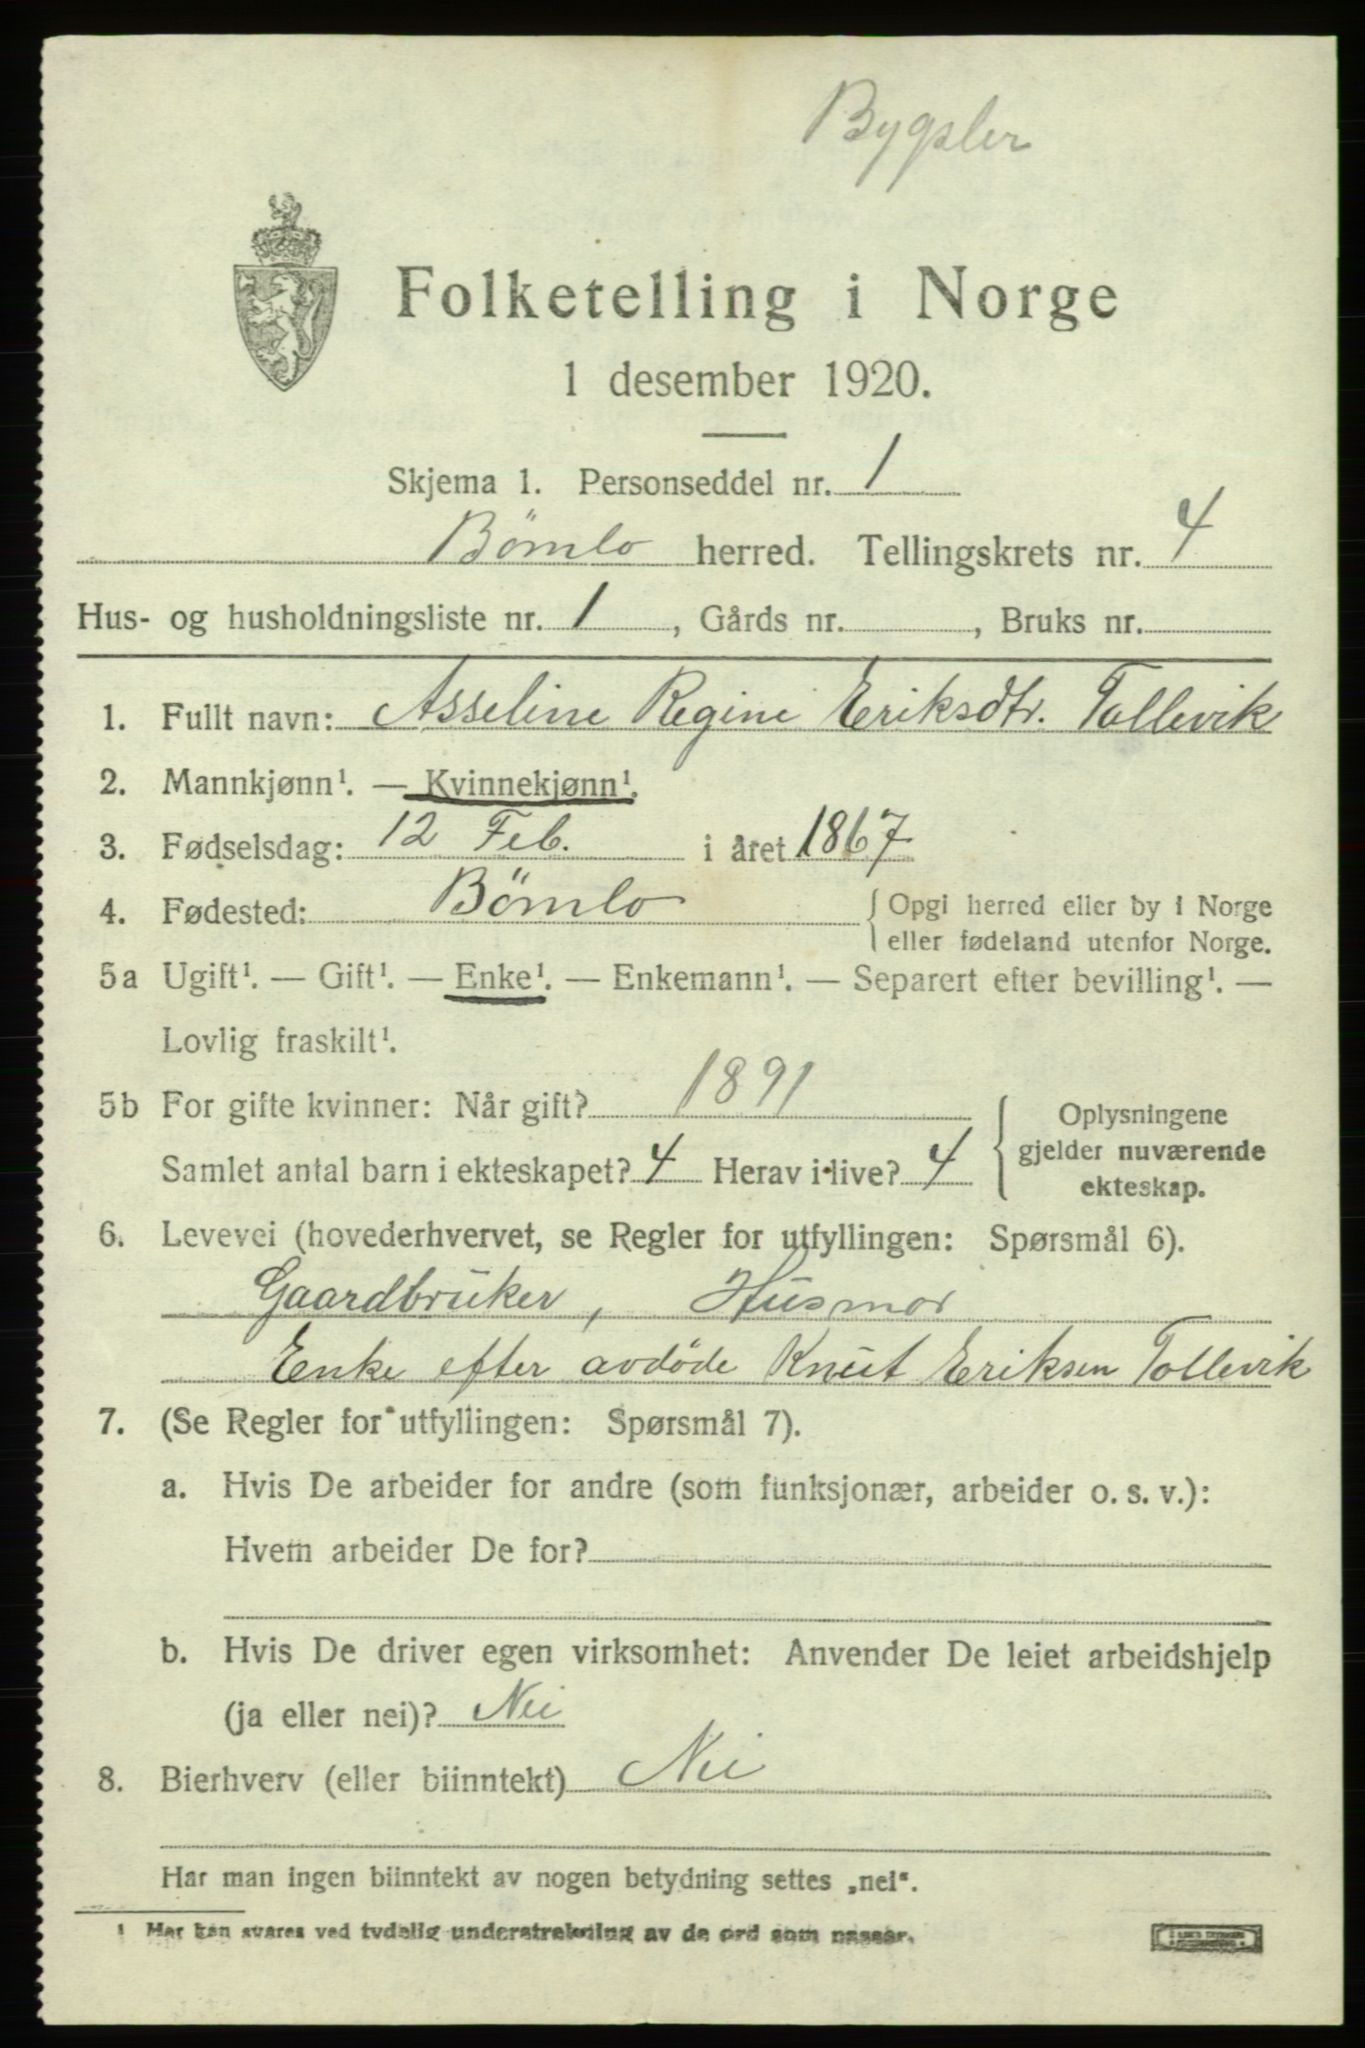 Bygsler
Folketelling i Norge
1 desember 1920.
Skjema 1. Personseddel nr. 1
Bömlo herred. Tellingskrets nr. 4
Hus- og husholdningsliste nr. 1, Gårds nr. , Bruks nr.
1. Fullt navn: Asseline Regine Eriksdtr. Tollevik
2. Mannkjønn¹. — Kvinnekjønn¹.
3. Fødselsdag: 12 Feb. i året 1867
4. Fødested: Bömlo { Opgi herred eller by i Norge
eller fødeland utenfor Norge.
5a Ugift¹. — Gift¹. — Enke¹. — Enkemann¹. — Separert efter bevilling¹. —
Lovlig fraskilt¹.
5b For gifte kvinner: Når gift? 1891
Samlet antal barn i ekteskapet? 4 Herav i live? 4
{ Oplysningene
gjelder nuværende
ekteskap.
6. Levevei (hovederhvervet, se Regler for utfyllingen: Spørsmål 6).
Gaardbruker, Husmor
Enke efter avdöde Knut Eriksen Tollevik
7. (Se Regler for utfyllingen: Spørsmål 7).
a. Hvis De arbeider for andre (som funksjonær, arbeider o. s. v.):
Hvem arbeider De for?
b. Hvis De driver egen virksomhet: Anvender De leiet arbeidshjelp
(ja eller nei)? Nei
8. Bierhverv (eller biinntekt) Nei
Har man ingen biinntekt av nogen betydning settes „nei“.
¹ Her kan svares ved tydelig understrekning av de ord som passer.